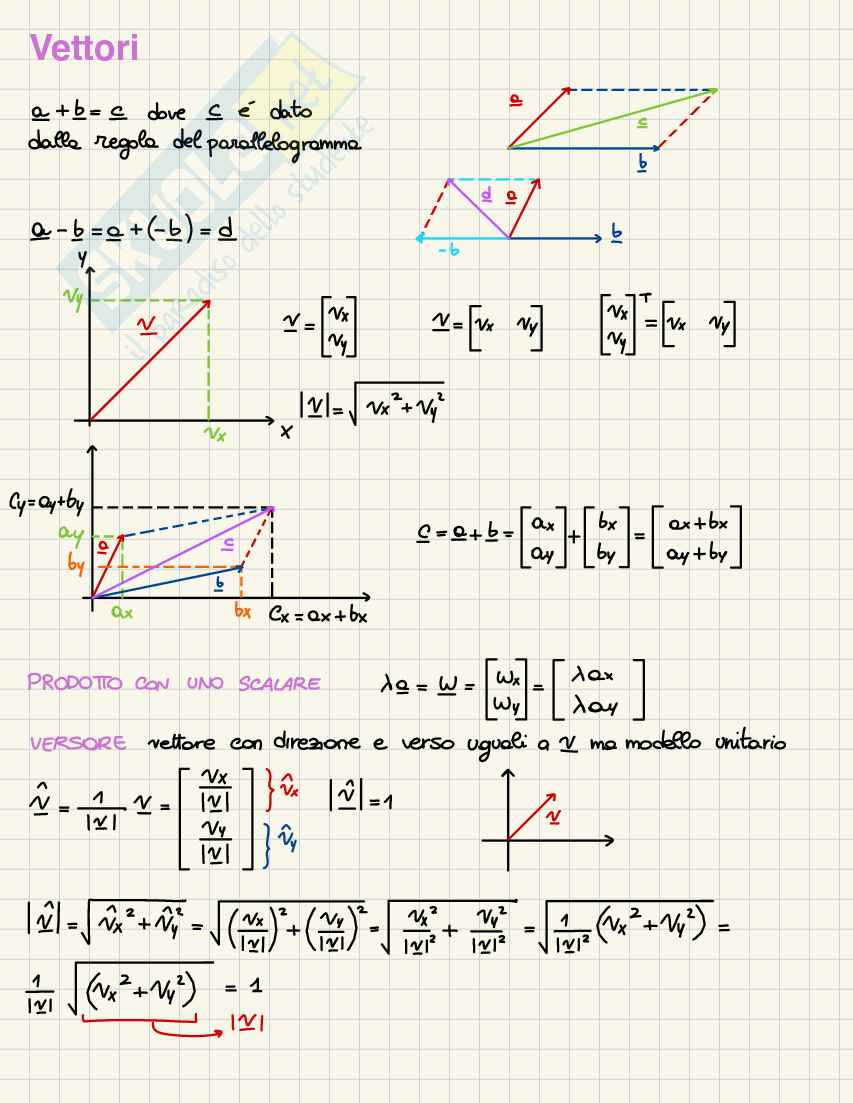 Vettori
a + b = c dove c é dato
dalla regola del parallelogramma
a
c
b
d a
-b b
a - b = a + (-b) = d
y
vy
v
vx
x
v = [vx vy]
v = [vx vy]
[vx vy]ᵀ = [vx vy]
|v| = √(vx² + vy²)
Cy = ay + by
ay
by
a
c
b
ax
bx
Cx = ax + bx
c = a + b = [ax ay] + [bx by] = [ax + bx ay + by]
PRODOTTO CON UNO SCALARE λa = w = [wx wy] = [λax λay]
VERSORE vettore con direzione e verso uguali a v ma modello unitario
v̂ = 1/|v| · v = [vx/|v| vy/|v|] } v̂x } v̂y |v̂| = 1
v
|v̂| = √(v̂x² + v̂y²) = √((vx/|v|)² + (vy/|v|)²) = √(vx²/|v|² + vy²/|v|²) = √(1/|v|² (vx² + vy²)) =
1/|v| √(vx² + vy²) = 1
|v|
SKUOLA.net
il paradiso dello studente